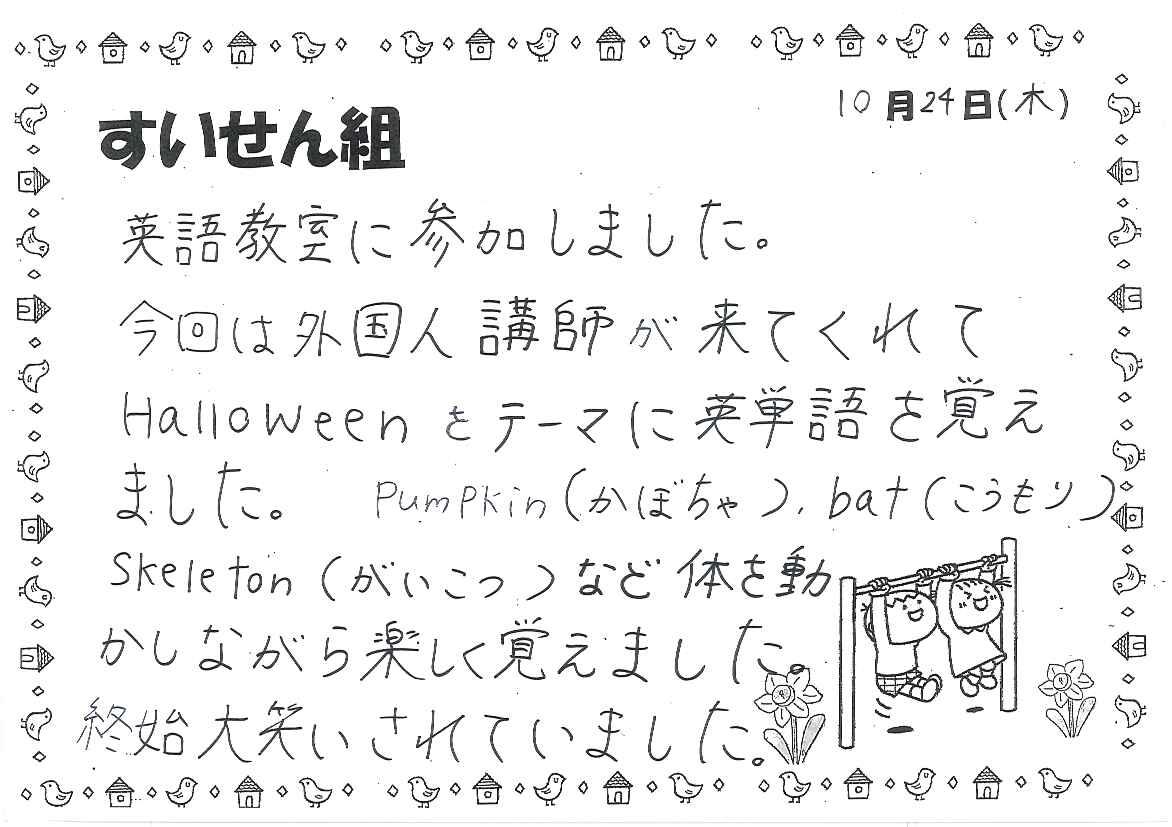 10月24日(木)
すいせん組
英語教室に参加しました。
今回は外国人講師が来てくれて
Halloweenをテーマに英単語を覚え
ました。 Pumpkin(かぼちゃ)、bat(こうもり)
Skeleton(がいこつ)など体を動
かしながら楽しく覚えました。
終始大笑いされていました。